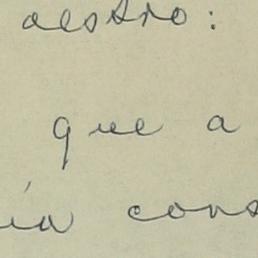 aestro:
que a
ía cons